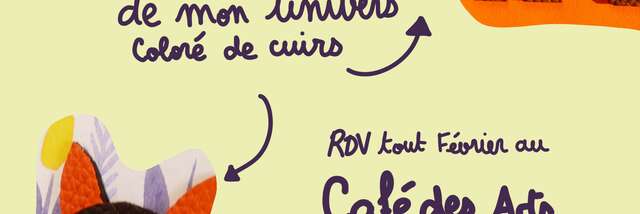 de mon univers
Coloré de cuirs
RDV tout Février au
Café des Arts